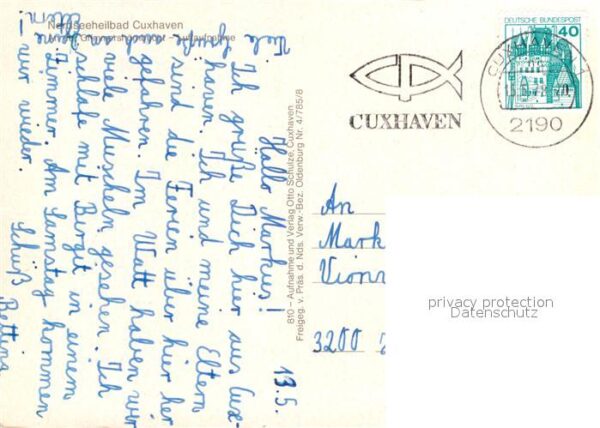 Nordseeheilbad Cuxhaven
Luftaufnahme
13.5.
Hallo Markus!
Ich grüße Dich hier aus Cux-
haven. Ich und meine Eltern
sind die Ferien über hier her
gefahren. Im Watt haben wir
viele Muscheln gesehen. Ich
schlafe mit Birgit in einem
Zimmer. Am Samstag kommen
wir wieder.
Tschüß
Bettina
Viele
Grüße
810 – Aufnahme und Verlag Otto Schulze, Cuxhaven
Freigeg. v. Präs. d. Nds. Verw.-Bez. Oldenburg Nr. 4/785/8
CUXHAVEN
DEUTSCHE BUNDESPOST
40
CUXHAVEN 1
2190
An
Mark
Vionn
3200
privacy protection
Datenschutz